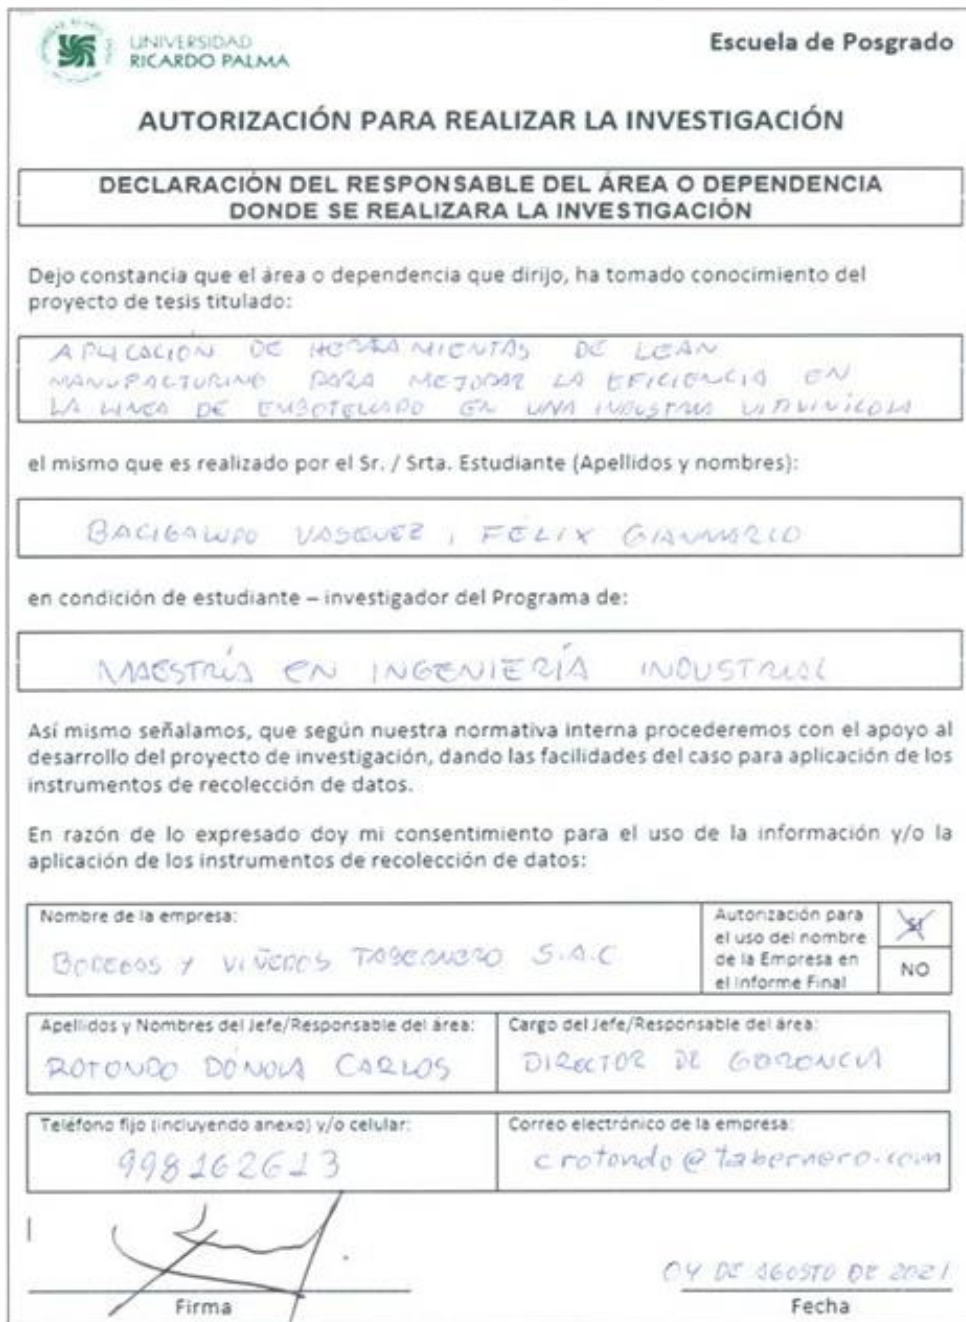 UNIVERSIDAD
RICARDO PALMA
Escuela de Posgrado
AUTORIZACIÓN PARA REALIZAR LA INVESTIGACIÓN
DECLARACIÓN DEL RESPONSABLE DEL ÁREA O DEPENDENCIA
DONDE SE REALIZARA LA INVESTIGACIÓN
Dejo constancia que el área o dependencia que dirijo, ha tomado conocimiento del
proyecto de tesis titulado:
APLICACIÓN DE HERRAMIENTAS DE LEAN
MANUFACTURING PARA MEJORAR LA EFICIENCIA EN
LA LINEA DE EMBOTELLADO EN UNA INDUSTRIA VITIVINÍCOLA
el mismo que es realizado por el Sr. / Srta. Estudiante (Apellidos y nombres):
BACIGALUPO VASQUEZ, FELIX GIANMARIO
en condición de estudiante – investigador del Programa de:
MAESTRÍA EN INGENIERÍA INDUSTRIAL
Así mismo señalamos, que según nuestra normativa interna procederemos con el apoyo al
desarrollo del proyecto de investigación, dando las facilidades del caso para aplicación de los
instrumentos de recolección de datos.
En razón de lo expresado doy mi consentimiento para el uso de la información y/o la
aplicación de los instrumentos de recolección de datos:
Nombre de la empresa:
BODEGAS Y VIÑEDOS TABERNERO S.A.C
Autorización para
el uso del nombre
de la Empresa en
el Informe Final
SI
NO
Apellidos y Nombres del Jefe/Responsable del área:
ROTONDO DÓNOLA CARLOS
Cargo del Jefe/Responsable del área:
DIRECTOR DE GERENCIA
Teléfono fijo (incluyendo anexo) y/o celular:
998162613
Correo electrónico de la empresa:
crotondo@tabernero.com
04 DE AGOSTO DE 2021
Firma
Fecha